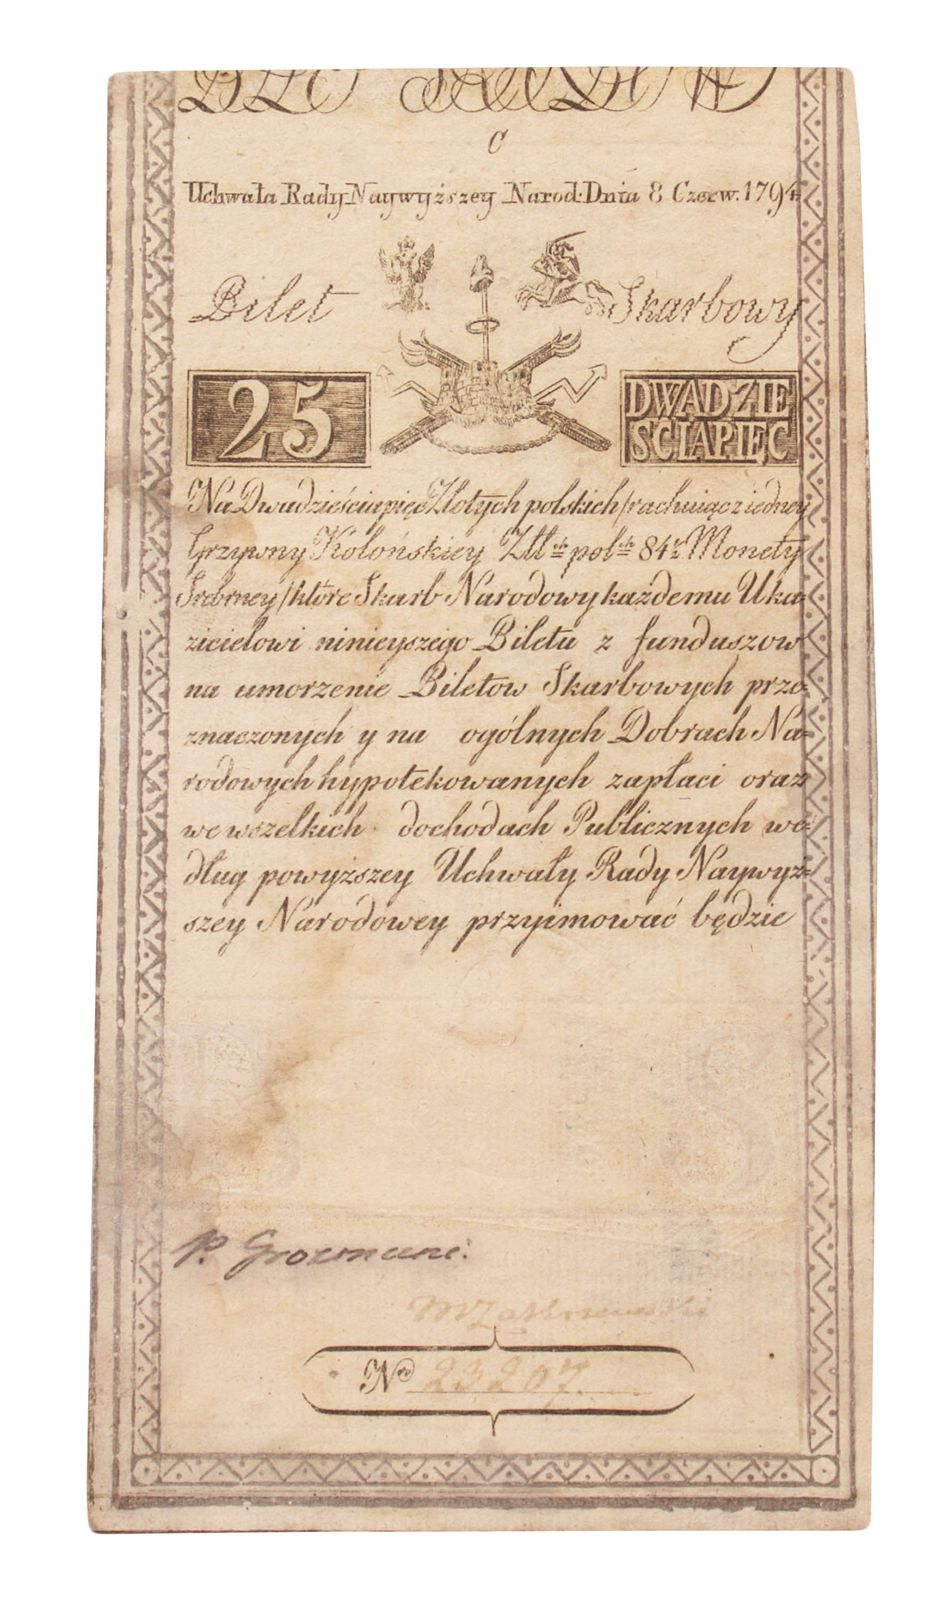 C
Uchwała Rady Naywyższey Narod: Dnia 8 Czerw. 1794
Bilet Skarbowy
25 DWADZIE
ŚCIAPIĘĆ
Na Dwadzieściapięć Złotych polskich /rachuiącziedney
Grzywny Kolońskiey Złł ch pol ch 84 ½ Monety
Srebrney/ktore Skarb Narodowy każdemu Uka-
zicielowi ninieyszego Biletu z funduszow
na umorzenie Biletow Skarbowych prze-
znaczonych y na ogólnych Dobrach Na-
rodowych hypotekowanych zapłaci oraz
we wszelkich dochodach Publicznych we-
dług powyższey Uchwały Rady Naywyż-
szey Narodowey przyimować będzie
P. Grozmani.
No 23207